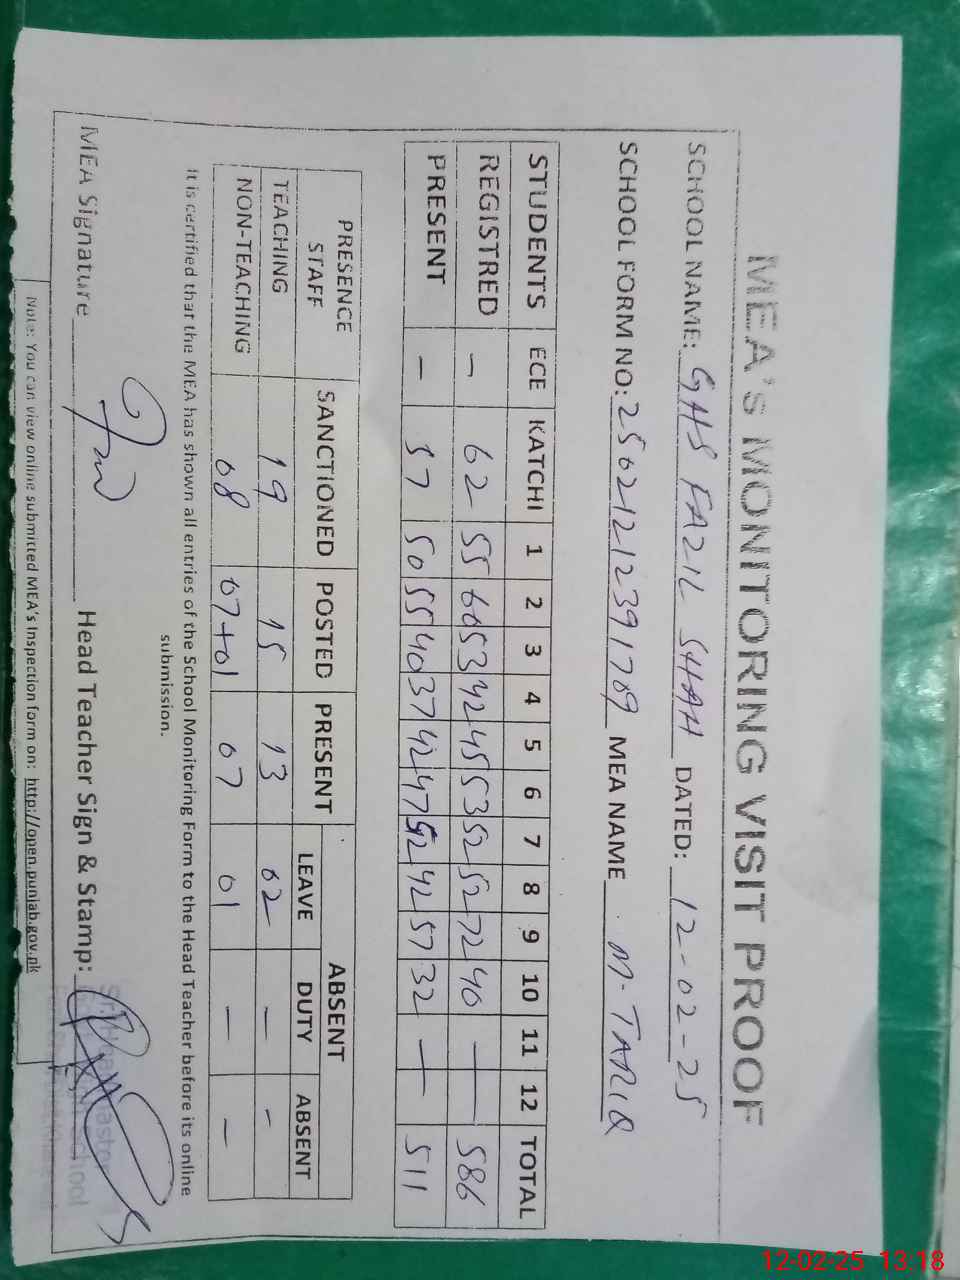 MEA's MONITORING VISIT PROOF
SCHOOL NAME: GHS FAZIL SHAH DATED: 12-02-25
SCHOOL FORM NO: 25021212391709 MEA NAME M-TARIQ
STUDENTS ECE KATCHI 1 2 3 4 5 6 7 8 9 10 11 12 TOTAL
REGISTRED — 62 55 60 53 42 45 53 52 52 72 40 — 586
PRESENT — 57 50 55 40 37 42 47 52 42 57 32 — 511
PRESENCE STAFF SANCTIONED POSTED PRESENT ABSENT
LEAVE DUTY ABSENT
TEACHING 19 15 13 02 — -
NON-TEACHING 08 07+01 07 01 — —
It is certified that the MEA has shown all entries of the School Monitoring Form to the Head Teacher before its online
submission.
MEA Signature Head Teacher Sign & Stamp:
Note: You can view online submitted MEA's Inspection form on: http://open.punjab.gov.pk
12-02-25 13:18